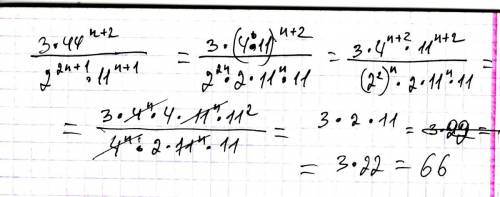 3·44^(n+2) / 2^(2n+1)·11^(n+1) = 3·(4·11)^(n+2) / 2^(2n)·2·11^n·11 = 3·4^(n+2)·11^(n+2) / (2²)^n·2·11^n·11 =
= 3·4^n·4·11^n·11² / 4^n·2·11^n·11 = 3·2·11 = 3·22 =
= 3·22 = 66